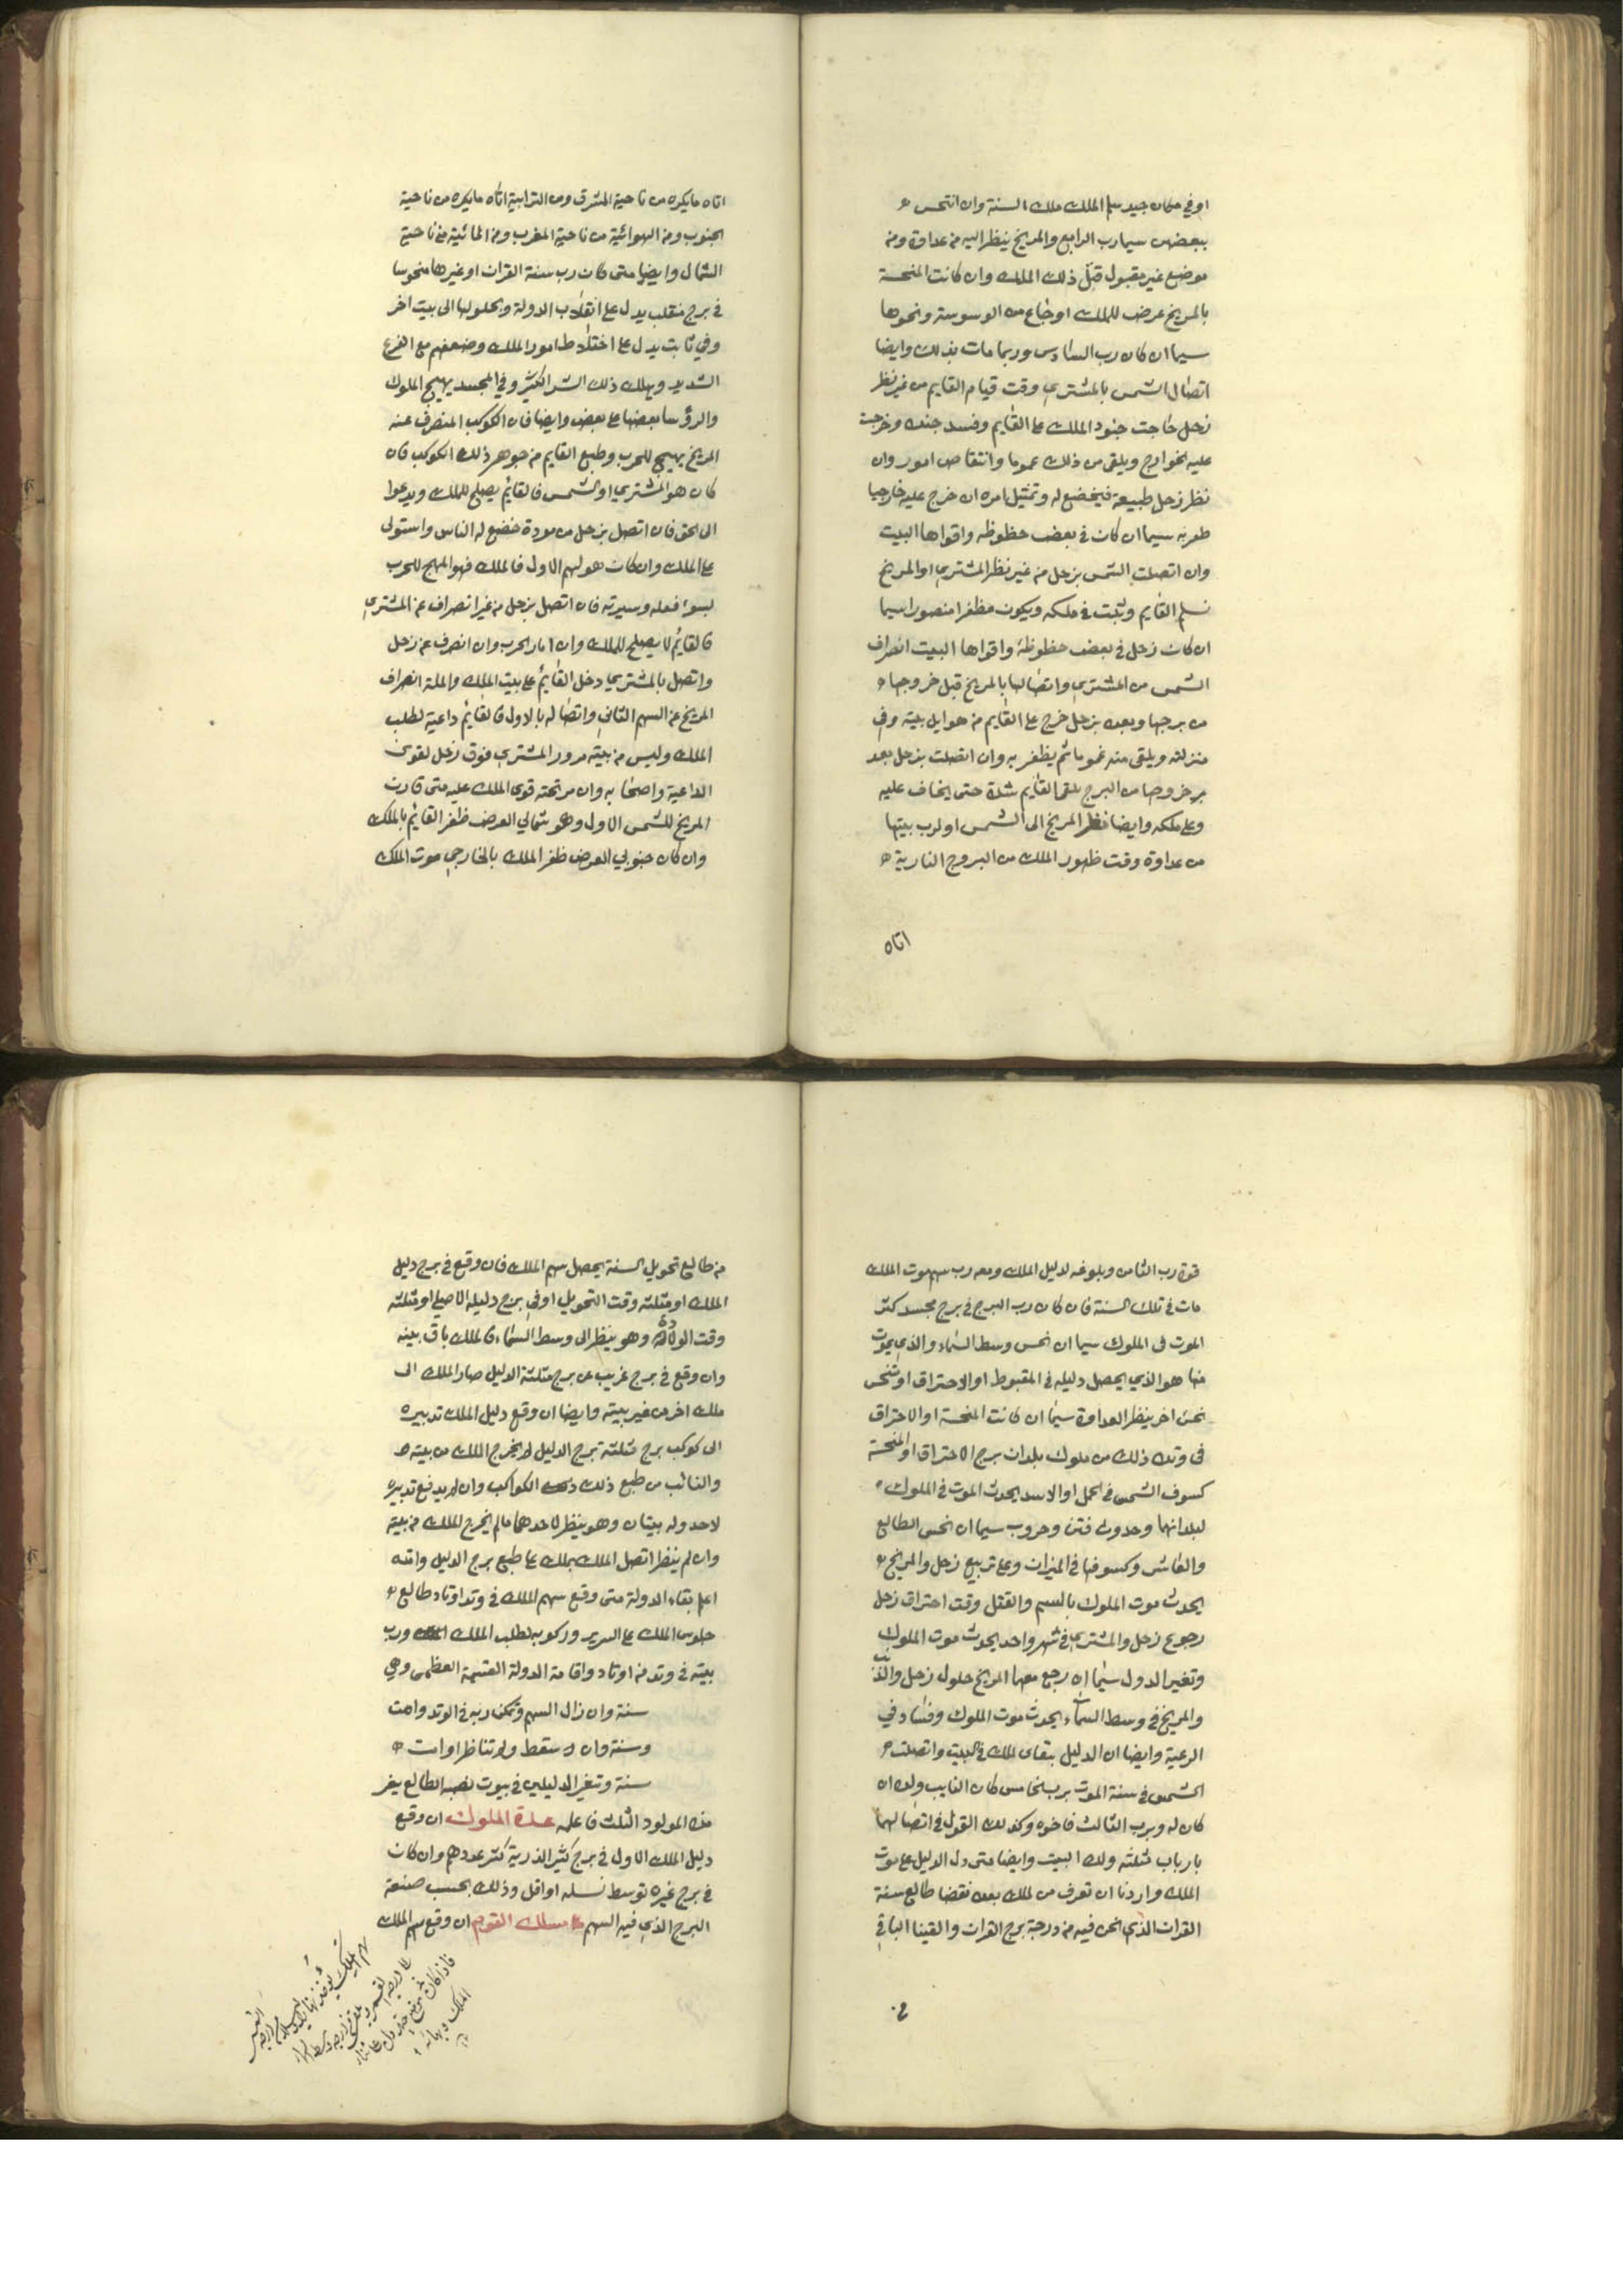 او في مكان جيد سلم الملك ملك السنة وان انتحس
ببعضهن سيما رب الرابع والمريخ ينظر اليه من عداوة ومن
موضع غير مقبول قتل ذلك الملك وان كانت المنحسة
بالمريخ عرض للملك اوجاع من الوسوسة ونحوها
سيما ان كان رب السادس وربما مات بذلك وايضا
اتصال الشمس بالمشتري وقت قيام القايم من غير نظر
زحل هاجت جنود الملك على القايم وفسد جنده وخرجت
عليه الخوارج ويلقى من ذلك غموما وانتقاص امور وان
نظر زحل طبيعة فيخضع له وتمتثل امره ان خرج عليه خارجيا
ظفر به سيما ان كان في بعض حظوظه واقواها البيت
وان اتصلت الشمس بزحل من غير نظر المشتري او المريخ
سلم القايم وثبت في ملكه ويكون مظفرا منصورا سيما
ان كان زحل في بعض حظوظه واقواها البيت انصراف
الشمس من المشتري واتصالها بالمريخ قبل خروجها
من برجها وبعده بزحل خرج على القايم من هو ايل بيته وفي
منزلته ويلقى منه غموما ثم يظفر به وان اتصلت بزحل بعد
خروجها من البرج يلقى القايم شدة حتى يخاف عليه
وعلى ملكه وايضا نظر المريخ الى الشمس او لرب بيتها
من عداوة وقت ظهور الملك من البروج النارية
اتاه
اتاه مايكره من ناحية المشرق ومن الترابية اتاه مايكره من ناحية
الجنوب ومن الهوائية من ناحية المغرب ومن المائية من ناحية
الشمال وايضا متى كان رب سنة القران او غيرها منحوسا
في برج منقلب يدل على انقلاب الدولة وبحلولها الى بيت اخر
وفي ثابت يدل على اختلاط امور الملك وضعفهم مع الفزع
الشديد ويهلك ذلك الشر الكثير وفي المجسد يهيج الملوك
والرؤسا بعضها على بعض وايضا فان الكوكب المنصرف عنه
المريخ يهيج للحرب وطبع القايم من جوهر ذلك الكوكب فان
كان هو المشتري او الشمس فالقايم يصلح للملك ويدعوا
الى الحق فان اتصل بزحل من مودة خضع له الناس واستولى
على الملك وان كان هو لهم الاول فالملك فهو المهيج للحرب
بسوء فعله وسيرته فان اتصل بزحل من غير انصراف عن المشتري
فالقايم لا يصلح للملك وان اثار الحرب وان انصرف عن زحل
واتصل بالمشتري دخل القايم على بيت الملك والملة انصراف
المريخ عن السهم الثاني واتصاله بالاول فالقايم داعية لطلب
الملك وليس من بيته مرور المشتري فوق زحل لقوى
الداعية واصحابه وان مر تحته قوى الملك عليه متى قارن
المريخ للشمس الاول وهو شمالي العرض ظفر القايم بالملك
وان كان جنوبي العرض ظفر الملك بالخارجي موت الملك
قوة رب الثامن وبلوغه لدليل الملك ومعه رب سهم موت الملك
مات في تلك السنة فان كان رب البرج في برج مجسد كثر
الموت فى الملوك سيما ان نحس وسط السماء والذي يموت
منها هو الذي يحصل دليله في الهبوط او الاحتراق او تنحس
نحس اخر ينظر العداوة سيما ان كانت المنحسة او الاحتراق
فى وتد ذلك من ملوك بلدان برج الاحتراق او المنحسة
كسوف الشمس في الحمل او الاسد يحدث الموت في الملوك
لبلدانهما وحدوث فتن وحروب سيما ان نحس الطالع
والعاشر وكسوفها في الميزان وعلى تربيع زحل والمريخ
يحدث موت الملوك بالسم والقتل وقت احتراق زحل
رجوع زحل والمشتري في شهر واحد يحدث موت الملوك
وتغير الدول سيما ان رجع معهما المريخ حلول زحل والذنب
والمريخ في وسط السماء يحدث موت الملوك وفساد في
الرعية وايضا ان الدليل بتقاى الملك في البيت واتصلت
الشمس في سنة الموت برب الخامس كان النايب ولده ان
كان له وبرب الثالث فاخوه وكذلك القول في اتصالهما
بارباب مثلثه ولد البيت وايضا متى دل الدليل على موت
الملك واردنا ان نعرف من الملك بعده نقصنا طالع سنة
القران الذي نحن فيه من درجة برج القران والقينا الباقي
من
من طالع تحويل السنة يحصل سهم الملك فان وقع في برج دليل
الملك او مثلثه وقت التحويل او في برج دليله الاصلي او مثلثه
وقت الولادة وهو ينظر الى وسط السماء فالملك باق ببيته
وان وقع في برج غريب عن برج مثلثة الدليل صار الملك الى
ملك اخر من غير بيته وايضا ان وقع دليل الملك تدبيره
الى كوكب برج مثلثة برج الدليل لم يخرج الملك من بيته
والنائب من طبع ذلك الكواكب وان لم يدفع تدبيره
لاحد وله بيتان وهو ينظر لاحدهما مالم يخرج الملك من بيته
وان لم ينظر اتصل الملك بملك على طبع برج الدليل والله
اعلم بقاء الدولة متى وقع سهم الملك في وتد اوتاد طالع
جلوس الملك على السرير وركوبه لطلب الملك ورب
بيته في وتد من اوتاد واقامة الدولة القسمة العظمى وهي
سنة وان زال السهم وتمكن ربه في الوتد دامت
وسنة وان لم سقط ولم تناظرا دامت
سنة وتغير الدليلين في بيوت نصبه الطالع يغر
منه المولود الثلث فاعلمه عدة الملوك ان وقع
دليل الملك الاول في برج كثير الذرية كثر عددهم وان كان
في برج غيره توسط نسله او اقل وذلك بحسب صنعة
البرج الذي فيه السهم ملك القوم ان وقع سهم الملك